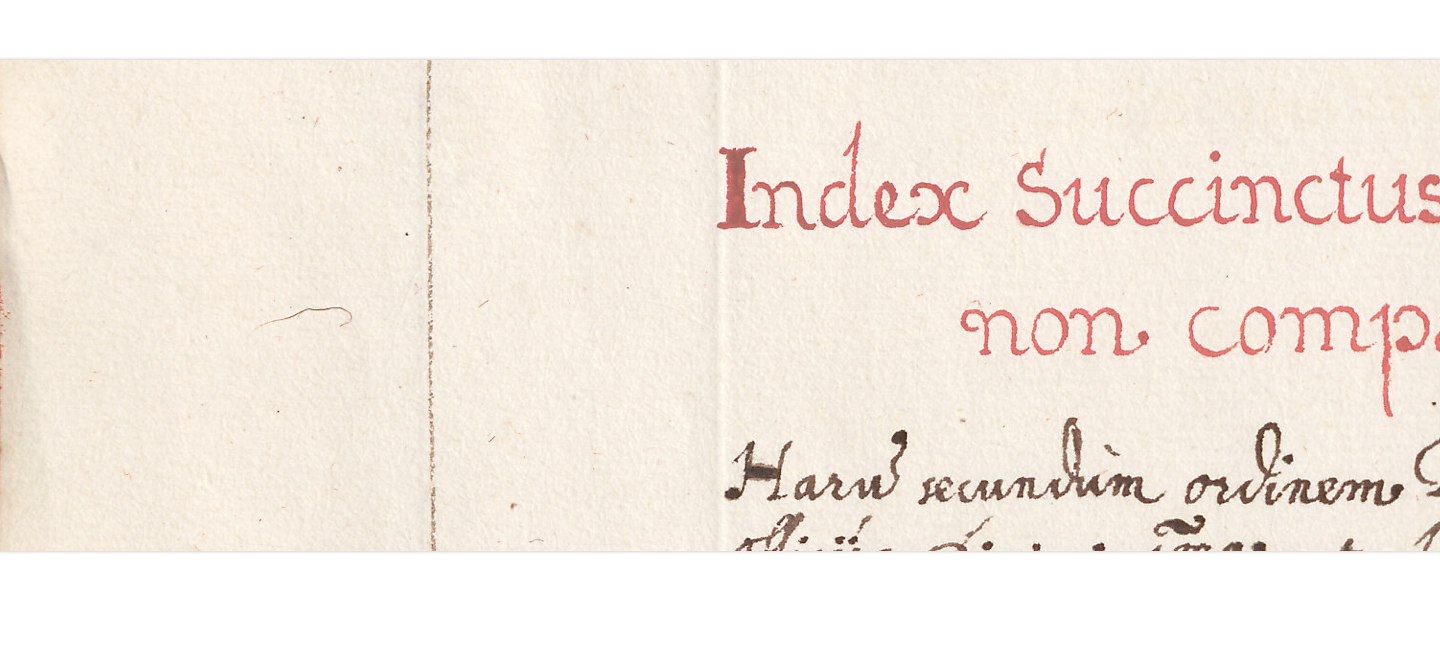 Index Succinctus
non
Haru᷉ secundùm ordinem